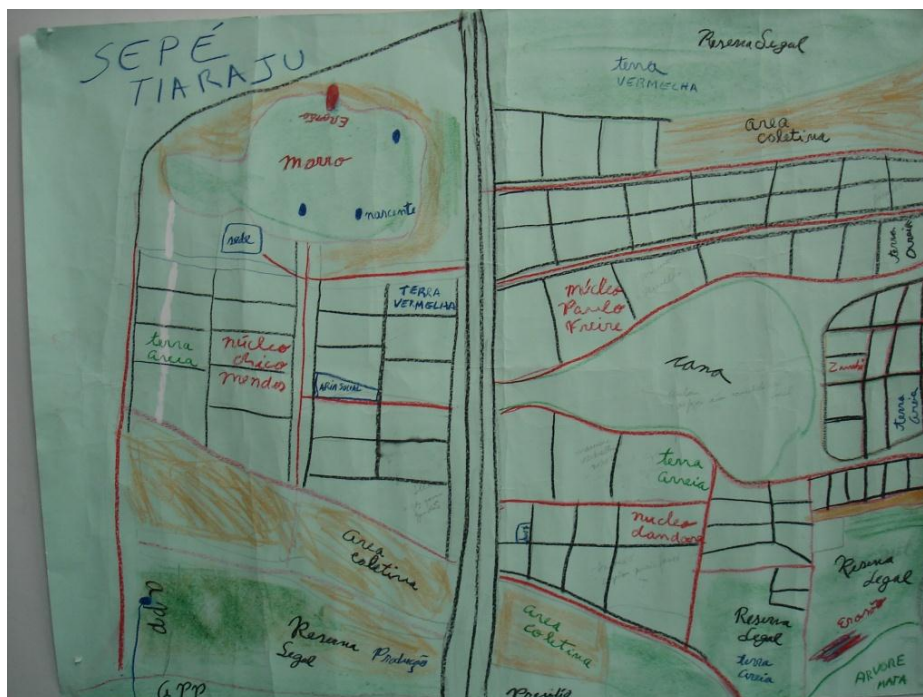 SEPÉ
TIARAJU
Erosão
morro
nascente
sede
TERRA
VERMELHA
terra
areia
núcleo
chico
mendes
AREA SOCIAL
area
coletiva
Reserva
Legal
Produção
app
APP
Reserva Legal
terra
VERMELHA
area
coletiva
terra
areia
núcleo
Paulo
Freire
cana
Zumbi
terra
areia
terra
areia
nucleo
dandara
area
coletiva
Reserva
Legal
terra
areia
Reserva
Legal
Erosão
ARVORE
MATA